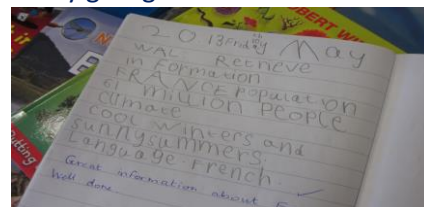 2013 Friday May
WAL Retrieve
information
FRANCE Population
61 million People
climate
cool winters and
sunnysummers.
Language French.
Great information about F
Well done
BERT
utting